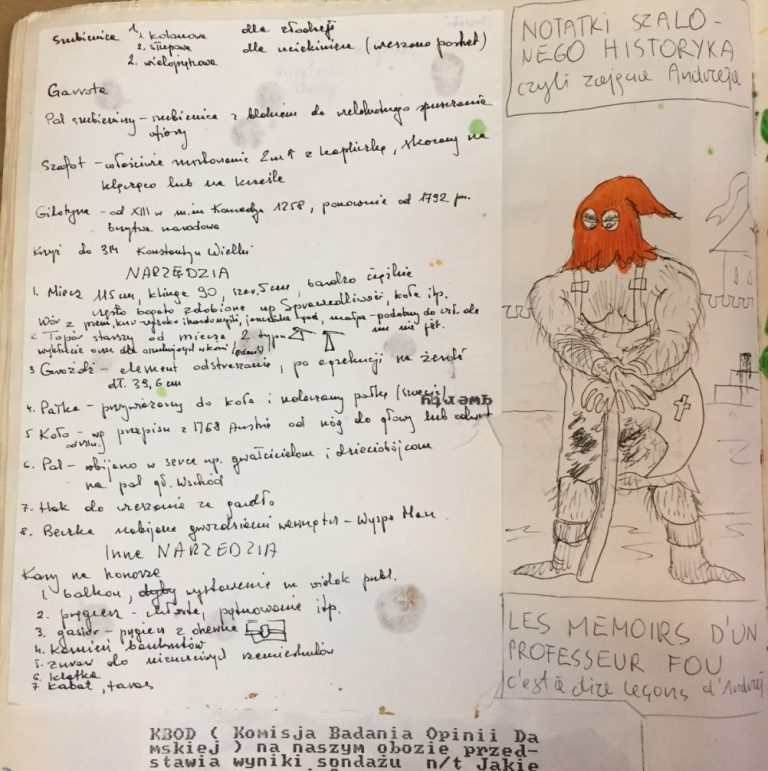 Szubienica 1. kolonowa dla złodzieji
2. słupowa dla uciekiniera (wieszano portret)
2. wielojęzykowa
Garrota
Pal szubieniczny – szubienica z blokiem do
ofiary
Szafot – właściwie rusztowanie 2m↑ z kapliczką, skazany na
klęcząco lub na krześle
Gilotyna – od XIII w m.in Komedza 1258, ponownie od 1792 pn.
brzytwa narodowa
Krzyż do 314 Konstantyn Wielki
NARZĘDZIA
1. Miecz 115 cm, klinga 90, szer. 5cm, bardzo ciężkie
często bogato zdobione np Sprawiedliwość, koło itp.
Wór z
2. Topór starszy od miecza 2 typu
3 Gwóźdź – element odstraszania, po egzekucji na żerdź
dł. 39,6 cm
4. Pałka – przywiązany do koła i pałką
5 Koło – wg przepisu z 1768 Austria od nóg do głowy lub odwr
6. Pal – wbijano w serce np. gwałcicielom i dzieciobójcom
na pal gł. Wschód
7. Hak do wieszania za gardło
8. Beczka nabijana gwoździami wewnątrz – Wyspa Man
Inne NARZĘDZIA
Kary na honorze
1. balkon, wystawienie na widok publ.
2. pręgierz – chłosta, piętnowanie itp.
3. gąsior – pręgierz z drewna
4. Kamień bankrutów
5. żuraw do nieuczciwych rzemieślników
6. klatka
7 kabat, taras
NOTATKI SZALO-
NEGO HISTORYKA
czyli zajęcia Andrzeja
LES MEMOIRS D'UN
PROFESSEUR FOU
c'est à dire leçons d'Andrzej
KBOD ( Komisja Badania Opinii Da
mskiej ) na naszym obozie przed-
stawia wyniki sondażu n/t Jakie